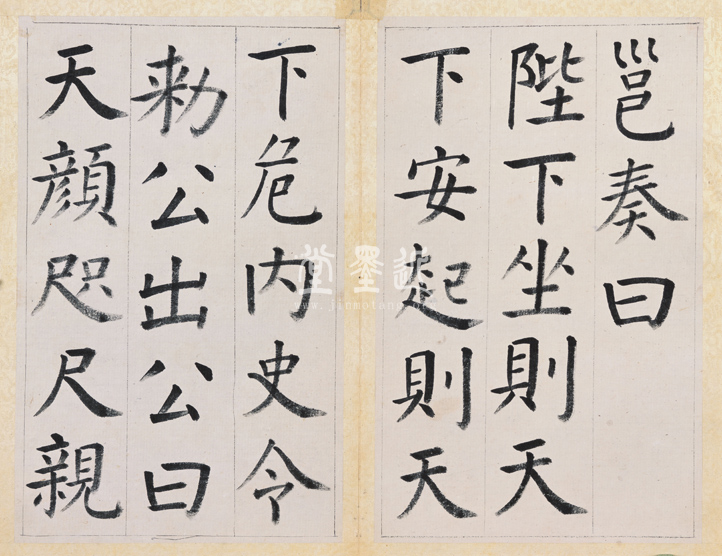 邕奏曰
陛下坐則天
下安起則天
下危內史令
勑公出公曰
天顔咫尺親
堂墨
www.jianmotang